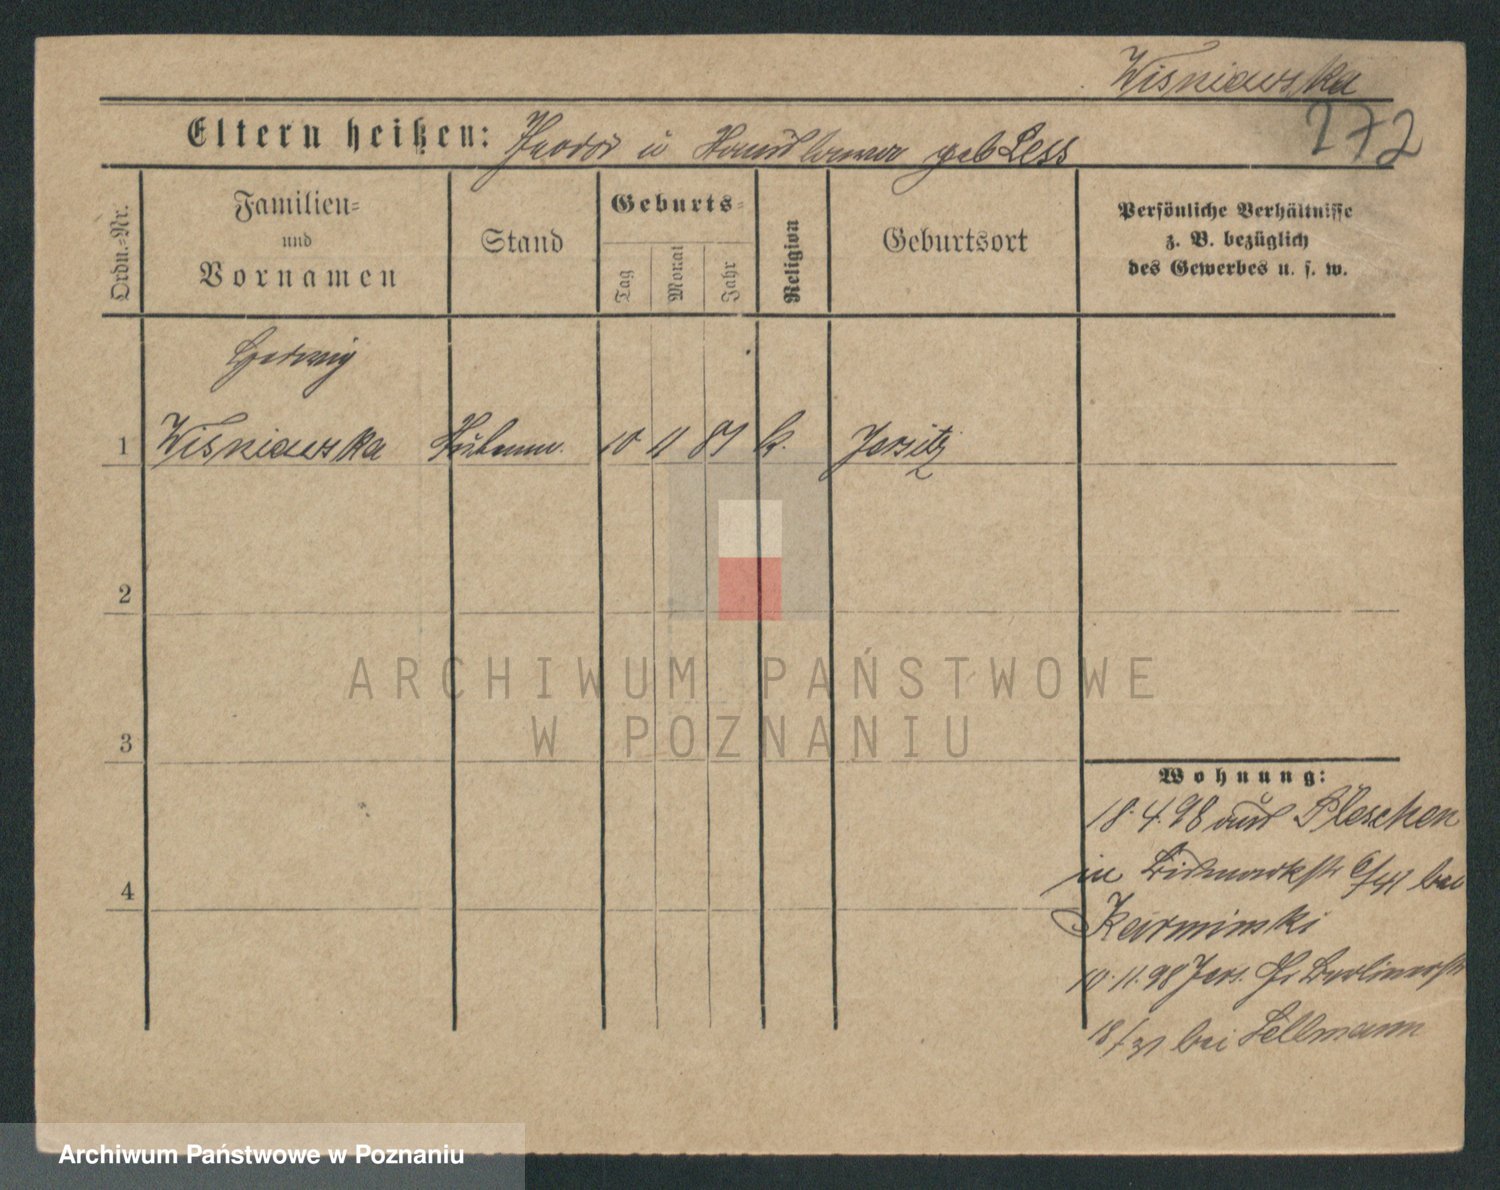 Wiśniewska
272
Eltern heißen: Theodor u geb Less
Ordn.=Nr.
Familien=
und
Vornamen
Stand
Geburts=
Tag
Monat
Jahr
Religion
Geburtsort
Persönliche Verhältnisse
z. B. bezüglich
des Gewerbes u. s. w.
Hedwig
1 Wiśniewska 10 11 k. Jersitz
2
3
4
Wohnung:
18.4.98 aus Pleschen
in Bismarckstr 6/ bei
Karminski
10.11.98 Jers. Gr Berlinerstr
18/ bei Sellmann
ARCHIWUM PAŃSTWOWE
W POZNANIU
Archiwum Państwowe w Poznaniu